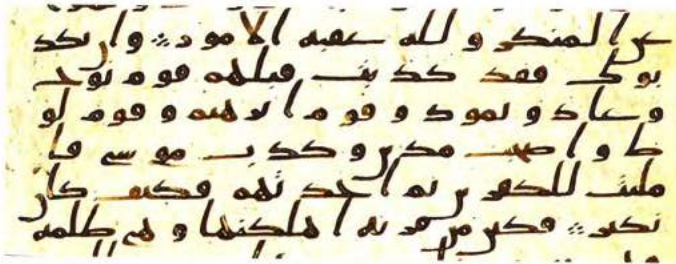 عن المنكر ولله عقبة الامور وان يكذ
بوك فقد كذبت قبلهم قوم نوح
وعاد وثمود وقوم ابرهيم وقوم لو
ط واصحب مدين وكذب موسى فا
مليت للكفرين ثم اخذتهم فكيف كان
نكير فكاين من قرية اهلكنها وهي ظلمة